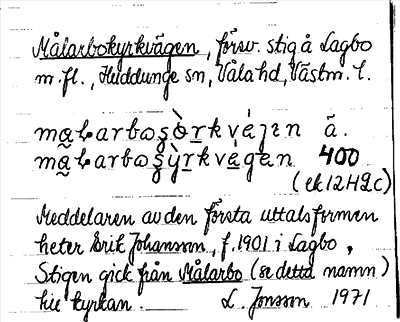 Målarbokyrkvägen, försv. stig å Lagbo
m.fl., Huddunge sn, Våla hd, Västm. l.
ma̰ɫarboʂò̠rkvéjen ä.
ma̰ɫarboʂỳrkvégen 400
(ek 12H2c)
Meddelaren av den första uttalsformen
heter Erik Johansson, f. 1901 i Lagbo,
Stigen gick från Målarbo (se detta namn)
kyrkan. L. Jonsson 1971